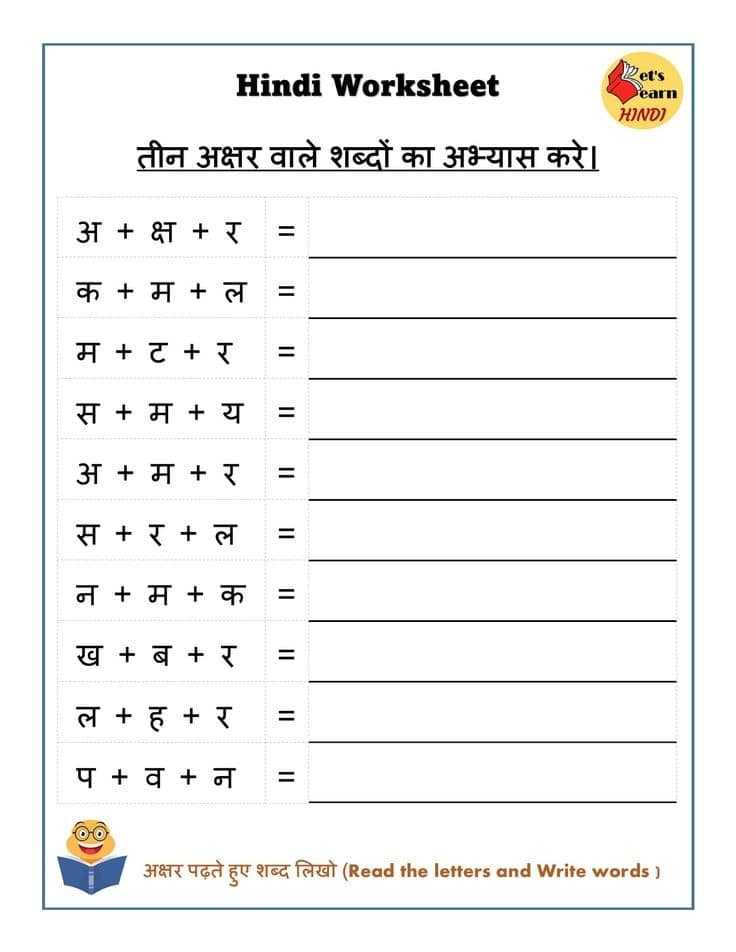 Hindi Worksheet
Let's
Learn
HINDI
तीन अक्षर वाले शब्दों का अभ्यास करे।
अ + क्ष + र =
क + म + ल =
म + ट + र =
स + म + य =
अ + म + र =
स + र + ल =
न + म + क =
ख + ब + र =
ल + ह + र =
प + व + न =
अक्षर पढ़ते हुए शब्द लिखो (Read the letters and Write words )